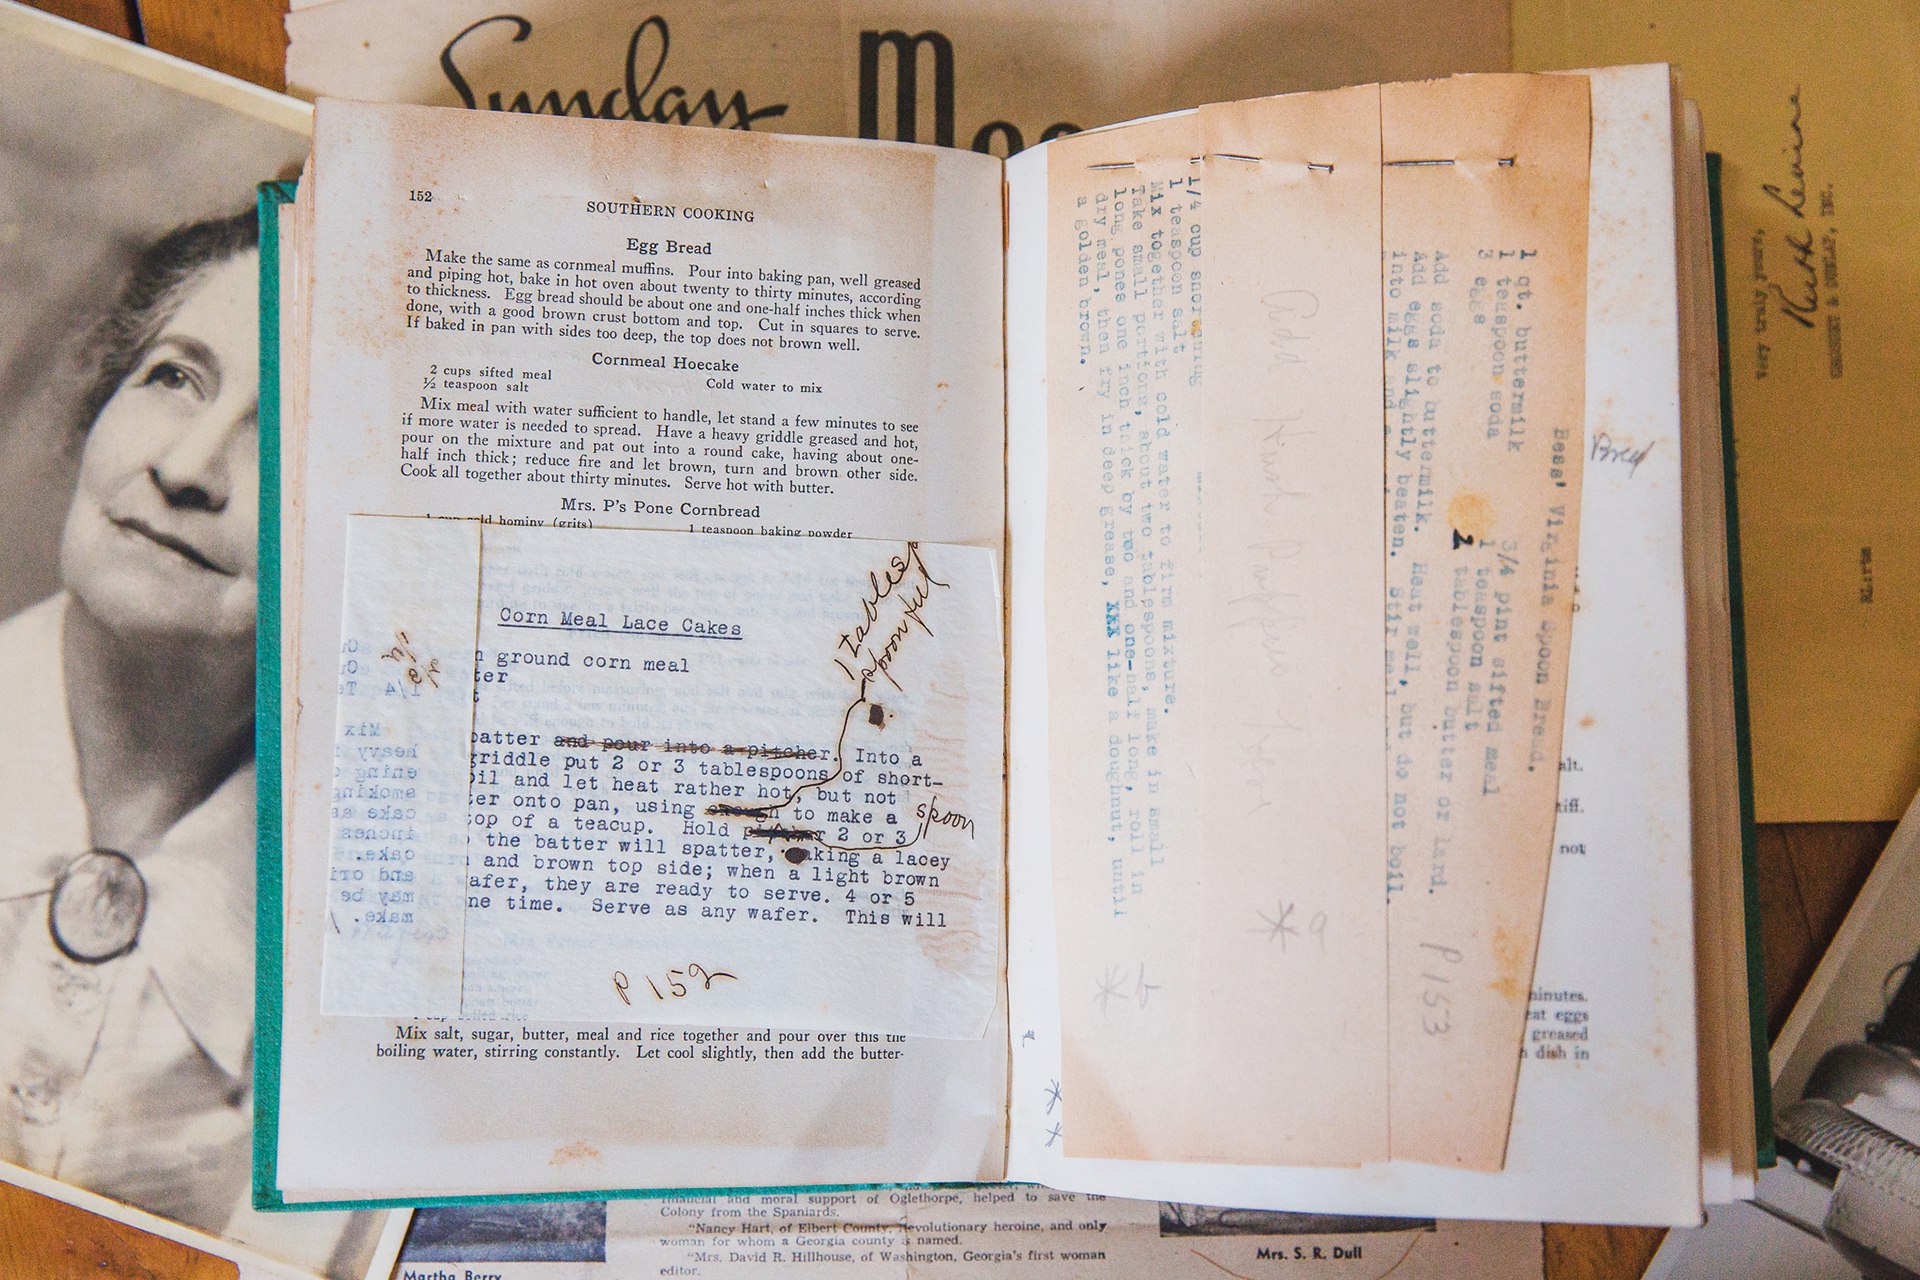 Sunday
152
SOUTHERN COOKING
Egg Bread
Make the same as cornmeal muffins. Pour into baking pan, well greased
and piping hot, bake in hot oven about twenty to thirty minutes, according
to thickness. Egg bread should be about one and one-half inches thick when
done, with a good brown crust bottom and top. Cut in squares to serve.
If baked in pan with sides too deep, the top does not brown well.
Cornmeal Hoecake
2 cups sifted meal
½ teaspoon salt
Cold water to mix
Mix meal with water sufficient to handle, let stand a few minutes to see
if more water is needed to spread. Have a heavy griddle greased and hot,
pour on the mixture and pat out into a round cake, having about one-
half inch thick; reduce fire and let brown, turn and brown other side.
Cook all together about thirty minutes. Serve hot with butter.
Mrs. P's Pone Cornbread
1 cup cold hominy (grits)
1 teaspoon baking powder
1 tables
poonful
Corn Meal Lace Cakes
ground corn meal
ter
batter and pour into a pitcher. Into a
griddle put 2 or 3 tablespoons of short-
oil and let heat rather hot, but not
ter onto pan, using enough to make a
spoon
top of a teacup. Hold pitcher 2 or 3
the batter will spatter, making a lacey
and brown top side; when a light brown
afer, they are ready to serve. 4 or 5
ne time. Serve as any wafer. This will
P 152
Mix salt, sugar, butter, meal and rice together and pour over this the
boiling water, stirring constantly. Let cool slightly, then add the butter-
1/4 cup shortening
1 teaspoon salt
Mix together with cold water to firm mixture.
Take small portions, about two tablespoons, make in small
long pones one inch thick by two and one-half long, roll in
dry meal, then fry in deep grease, XXX like a doughnut, until
a golden brown.
* b
* a
Bess' Virginia Spoon Bread.
1 qt. buttermilk
3/4 pint sifted meal
1 teaspoon soda
1 teaspoon salt
3 eggs
2 tablespoon butter or lard.
Add soda to buttermilk. Heat well, but do not boil.
Add eggs slightly beaten. Stir meal
into milk and
P 153
Bread
alt.
iff.
not
minutes.
eat eggs
greased
dish in
Very truly yours,
Ruth Levine
INC.
financial and moral support of Oglethorpe, helped to save the
Colony from the Spaniards.
"Nancy Hart, of Elbert County, Revolutionary heroine, and only
woman for whom a Georgia county is named.
"Mrs. David R. Hillhouse, of Washington, Georgia's first woman
editor.
Martha Berry
Mrs. S. R. Dull